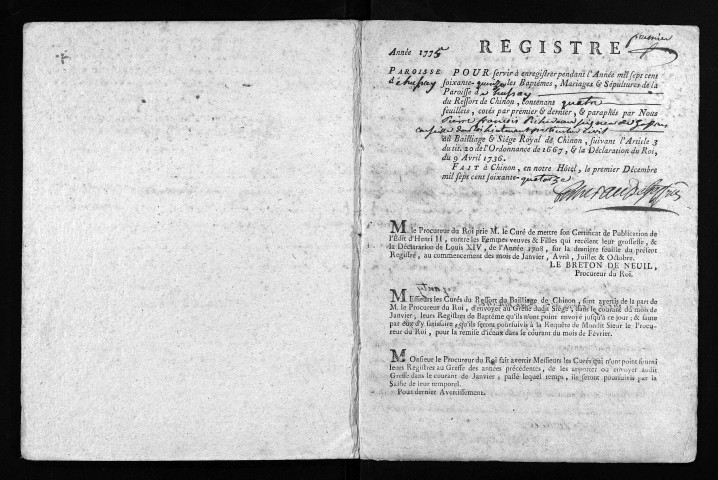 premier
Année 1775 REGISTRE
PAROISSE POUR servir à enregistrer pendant l'Année mil sept cent
soixante-quinze les Baptêmes, Mariages & Sépultures de la
Paroisse d
du Ressort de Chinon, contenans quatre
feuillets, cotés par premier & dernier, & paraphés par Nous
Pierre François
au Bailliage & Siége Royal de Chinon, suivant l'Article 3
du tit. 20 de l'Ordonnance de 1667, & la Déclaration du Roi,
du 9 Avril 1736.
FAIT à Chinon, en notre Hôtel, le premier Décembre
mil sept cent soixante-quatorze
M le Procureur du Roi prie M. le Curé de mettre son Certificat de Publication de
l'Edit d'Henri II, contre les Femmes veuves & Filles qui recélent leur grossesse, &
la Déclaration de Louis XIV, de l'Année 1708, sur la derniere feuille du présent
Registre, au commencement des mois de Janvier, Avril, Juillet & Octobre.
LE BRETON DE NEUIL,
Procureur du Roi.
Messieurs les Curés du Ressort du Bailliage de Chinon, sont avertis de la part de
M. le Procureur du Roi, d'envoyer au Greffe dudit Siége, dans le courant du mois de
Janvier, leurs Registres de Baptême qu'ils n'ont point envoyé jusqu'à ce jour; & faute
par eux d'y satisfaire, qu'ils seront poursuivis à la Requête de Mondit Sieur le Procu-
reur du Roi, pour la remise d'iceux dans le courant du mois de Février.
Monsieur le Procureur du Roi fait avertir Messieurs les Curés qui n'ont point fourni
leurs Registres au Greffe des années précédentes, de les apporter ou envoyer audit
Greffe dans le courant de Janvier; passé lequel temps, ils seront poursuivis par la
Saisie de leur temporel.
Pour dernier Avertissement.